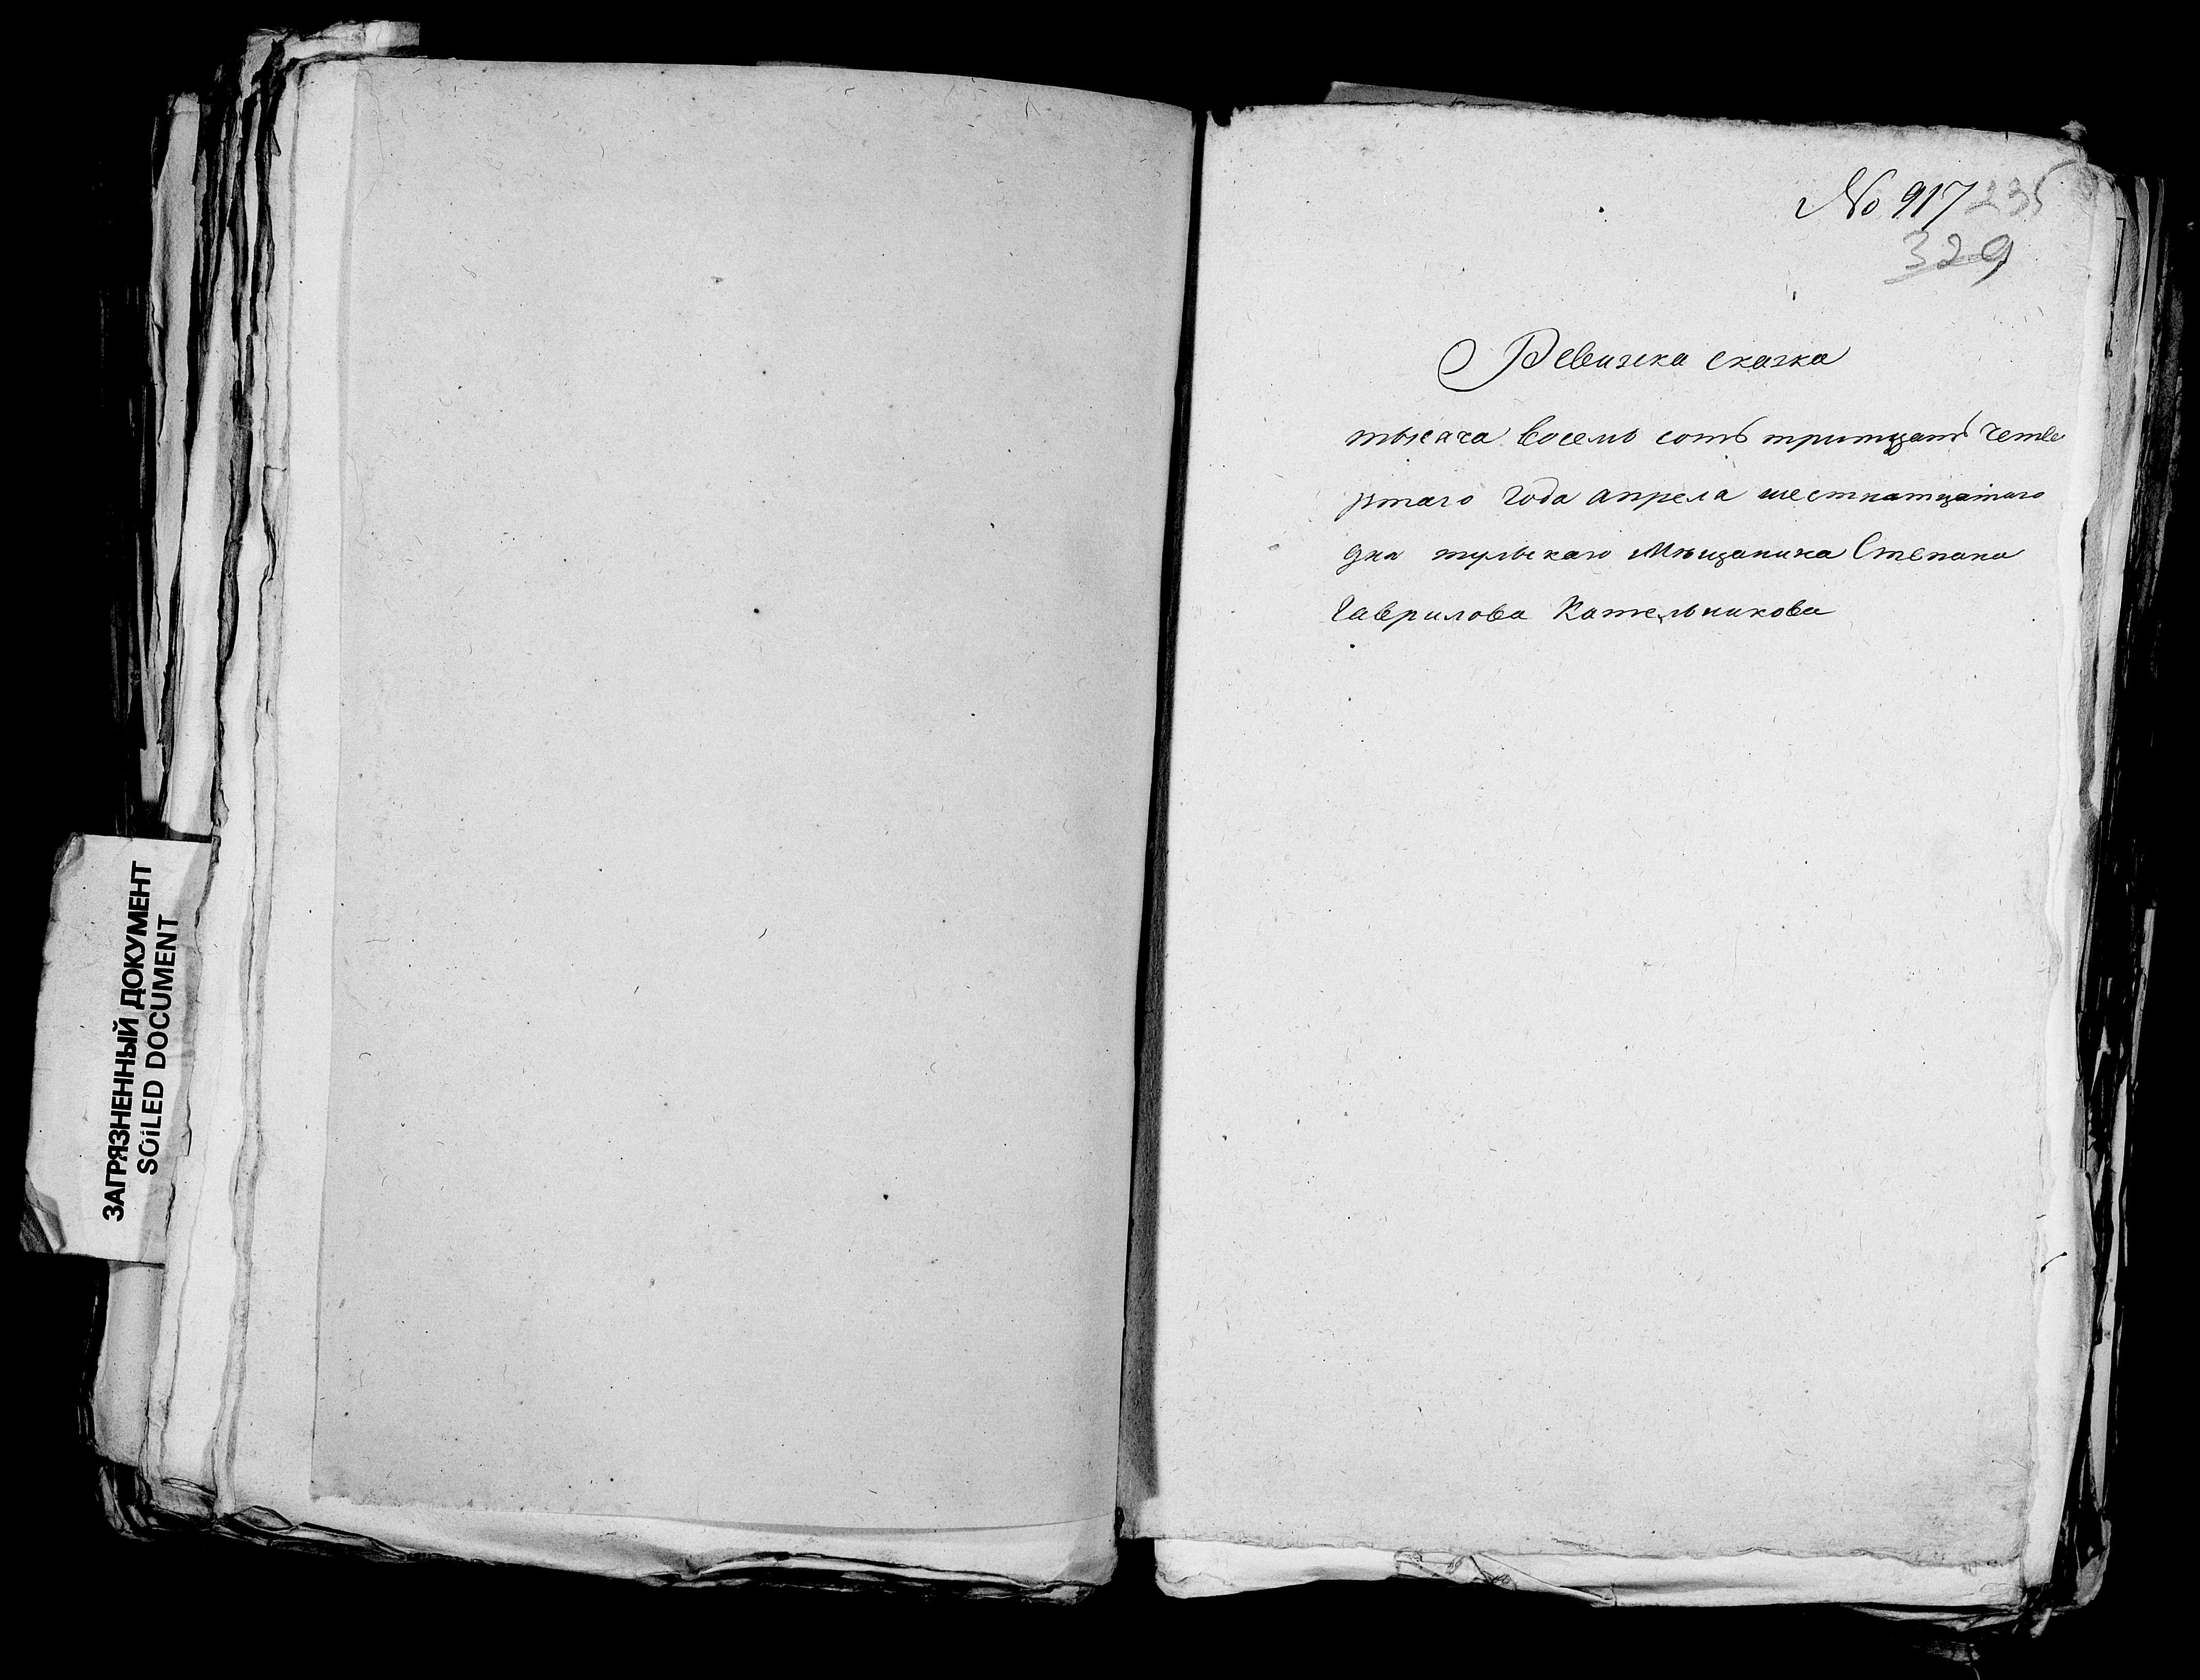 ЗАГРЯЗНЕННЫЙ ДОКУМЕНТ
SOILED DOCUMENT
№ 917 235
329
Ревизска сказка
тысяча восемь сотъ тритцать четве
ртаго года апреля шестнатцатаго
дня тульскаго мѣщанина Степана
Гаврилова Кательникова